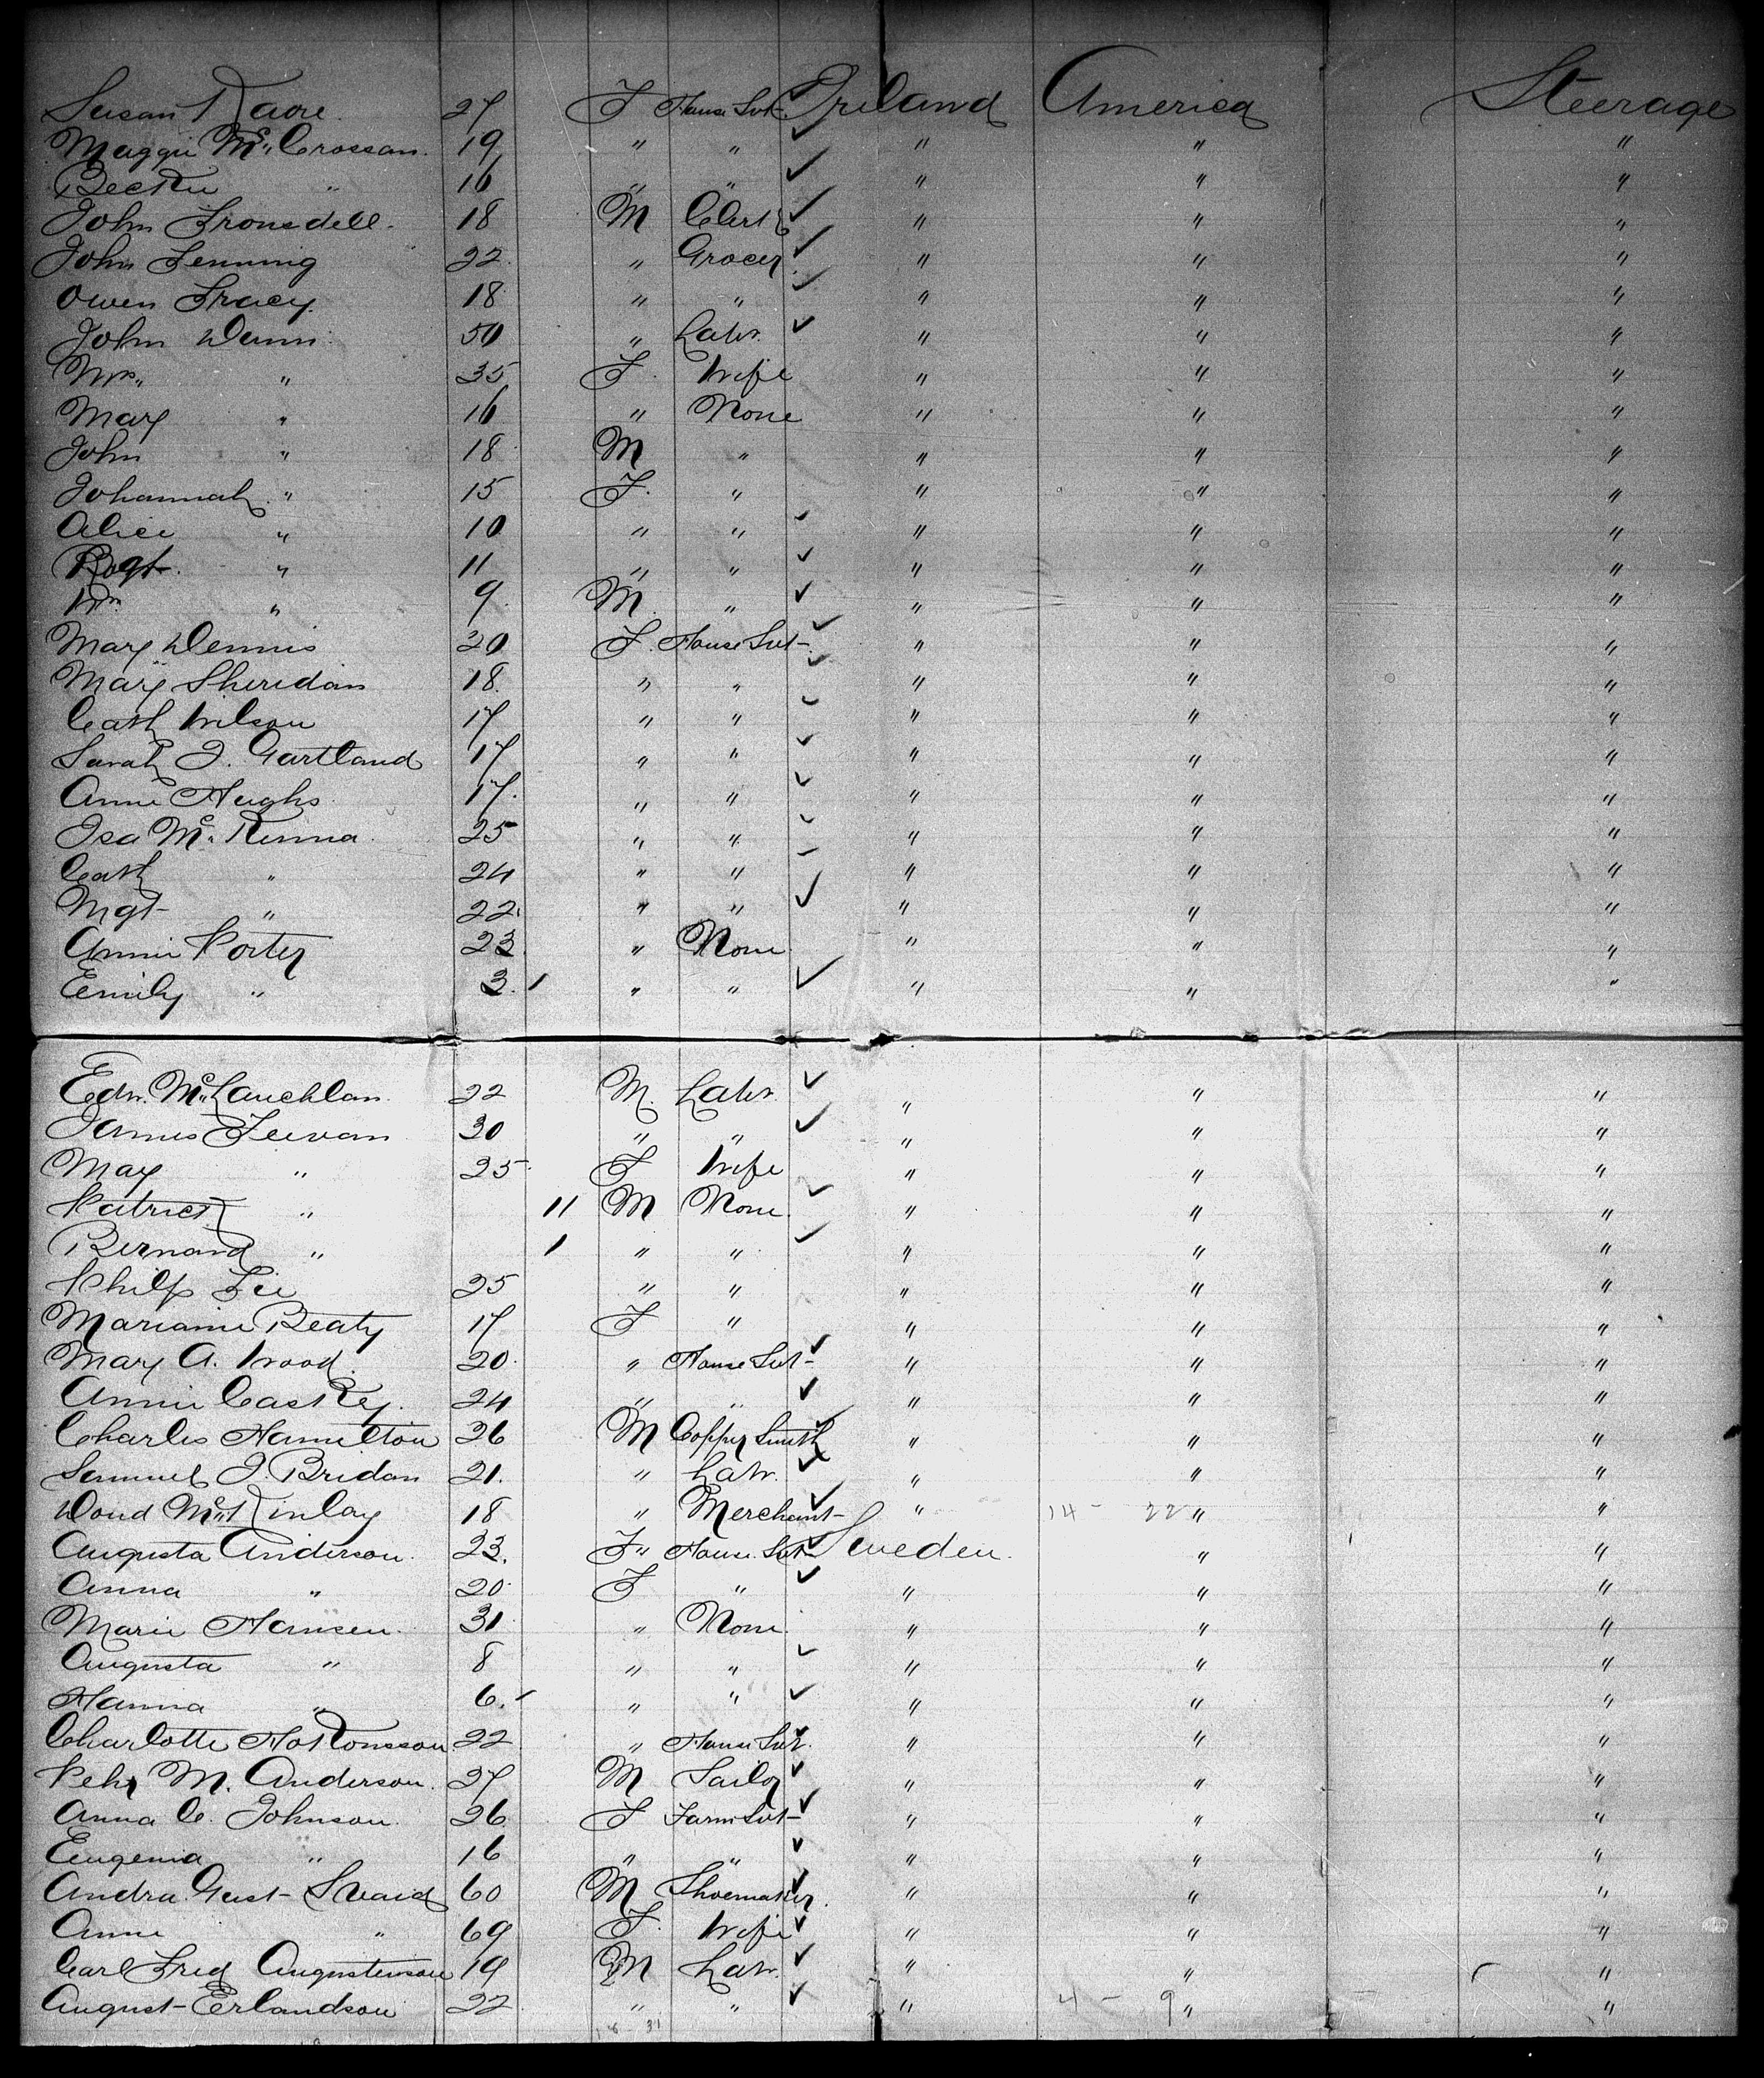 Susan Kaore. 27 F House Svt. Ireland America Steerage
Maggie Mc.Crossan. 19 " " " " "
Beckie " 16 " " " " "
John Fronsdell. 18 M Clerk " " "
John Fenning 22. " Grocer. " " "
Owen Tracy. 18 " " " " "
John Dunn. 50 " Labr. " " "
Mrs. " 35 F. Wife " " "
Mary " 16 " None " " "
John " 18 M " " " "
Johannah. " 15 F. " " " "
Alice " 10 " " " " "
" 11 " " " " "
Wm. " 9. M. " " " "
Mary Dennis 20 F. House Svt. " " "
Mary Sheridan 18. " " " " "
Cath Wilson 17 " " " " "
Sarah J. Gartland 17 " " " " "
Annie Hughs. 17. " " " " "
Isa Mc.Kenna. 25 " " " " "
Cath " 24 " " " " "
Mgt " 22. " " " " "
Annie Porter 23. " None. " " "
Emily " 3. " " " " "
Edw. Mc.Lauchlan. 22 M. Labr. " " "
James Feevan 30 " " " " "
May " 25. F Wife " " "
Patrick " 11 M None. " " "
Bernard " 1 " " " " "
Philp Lee 25 " " " " "
Marianne Beaty 17 F " " " "
Mary A. Wood. 20. " House Svt " " "
Annie Caskey. 24 " " " " "
Charles Hamilton 26 M Copper Smith " " "
Samuel J. Bridan 21. " Labr. " " "
Mc.Kinlay 18 " Merchant " 14 - 22 " "
Augusta Anderson. 23. F " House Svt Sweden. " "
Anna " 20. F " " " "
Marie Hansen. 31 " None. " " "
Augusta " 8 " " " " "
Hanna " 6. " " " " "
Charlotte Hokonsson 22 " House Svt. " " "
Pehr M. Anderson. 27 M Sailor " " "
Anna C. Johnson. 26 F Farm Svt " " "
Eugenia " 16 " " " " "
Andra Gust Svaid 60 M Shoemaker. " " "
Anne " 69 F. Wife " " "
Carl Fred Augustenson 19 M Labr. " " "
August Erlandson 22 " " " 4 - 9 " "